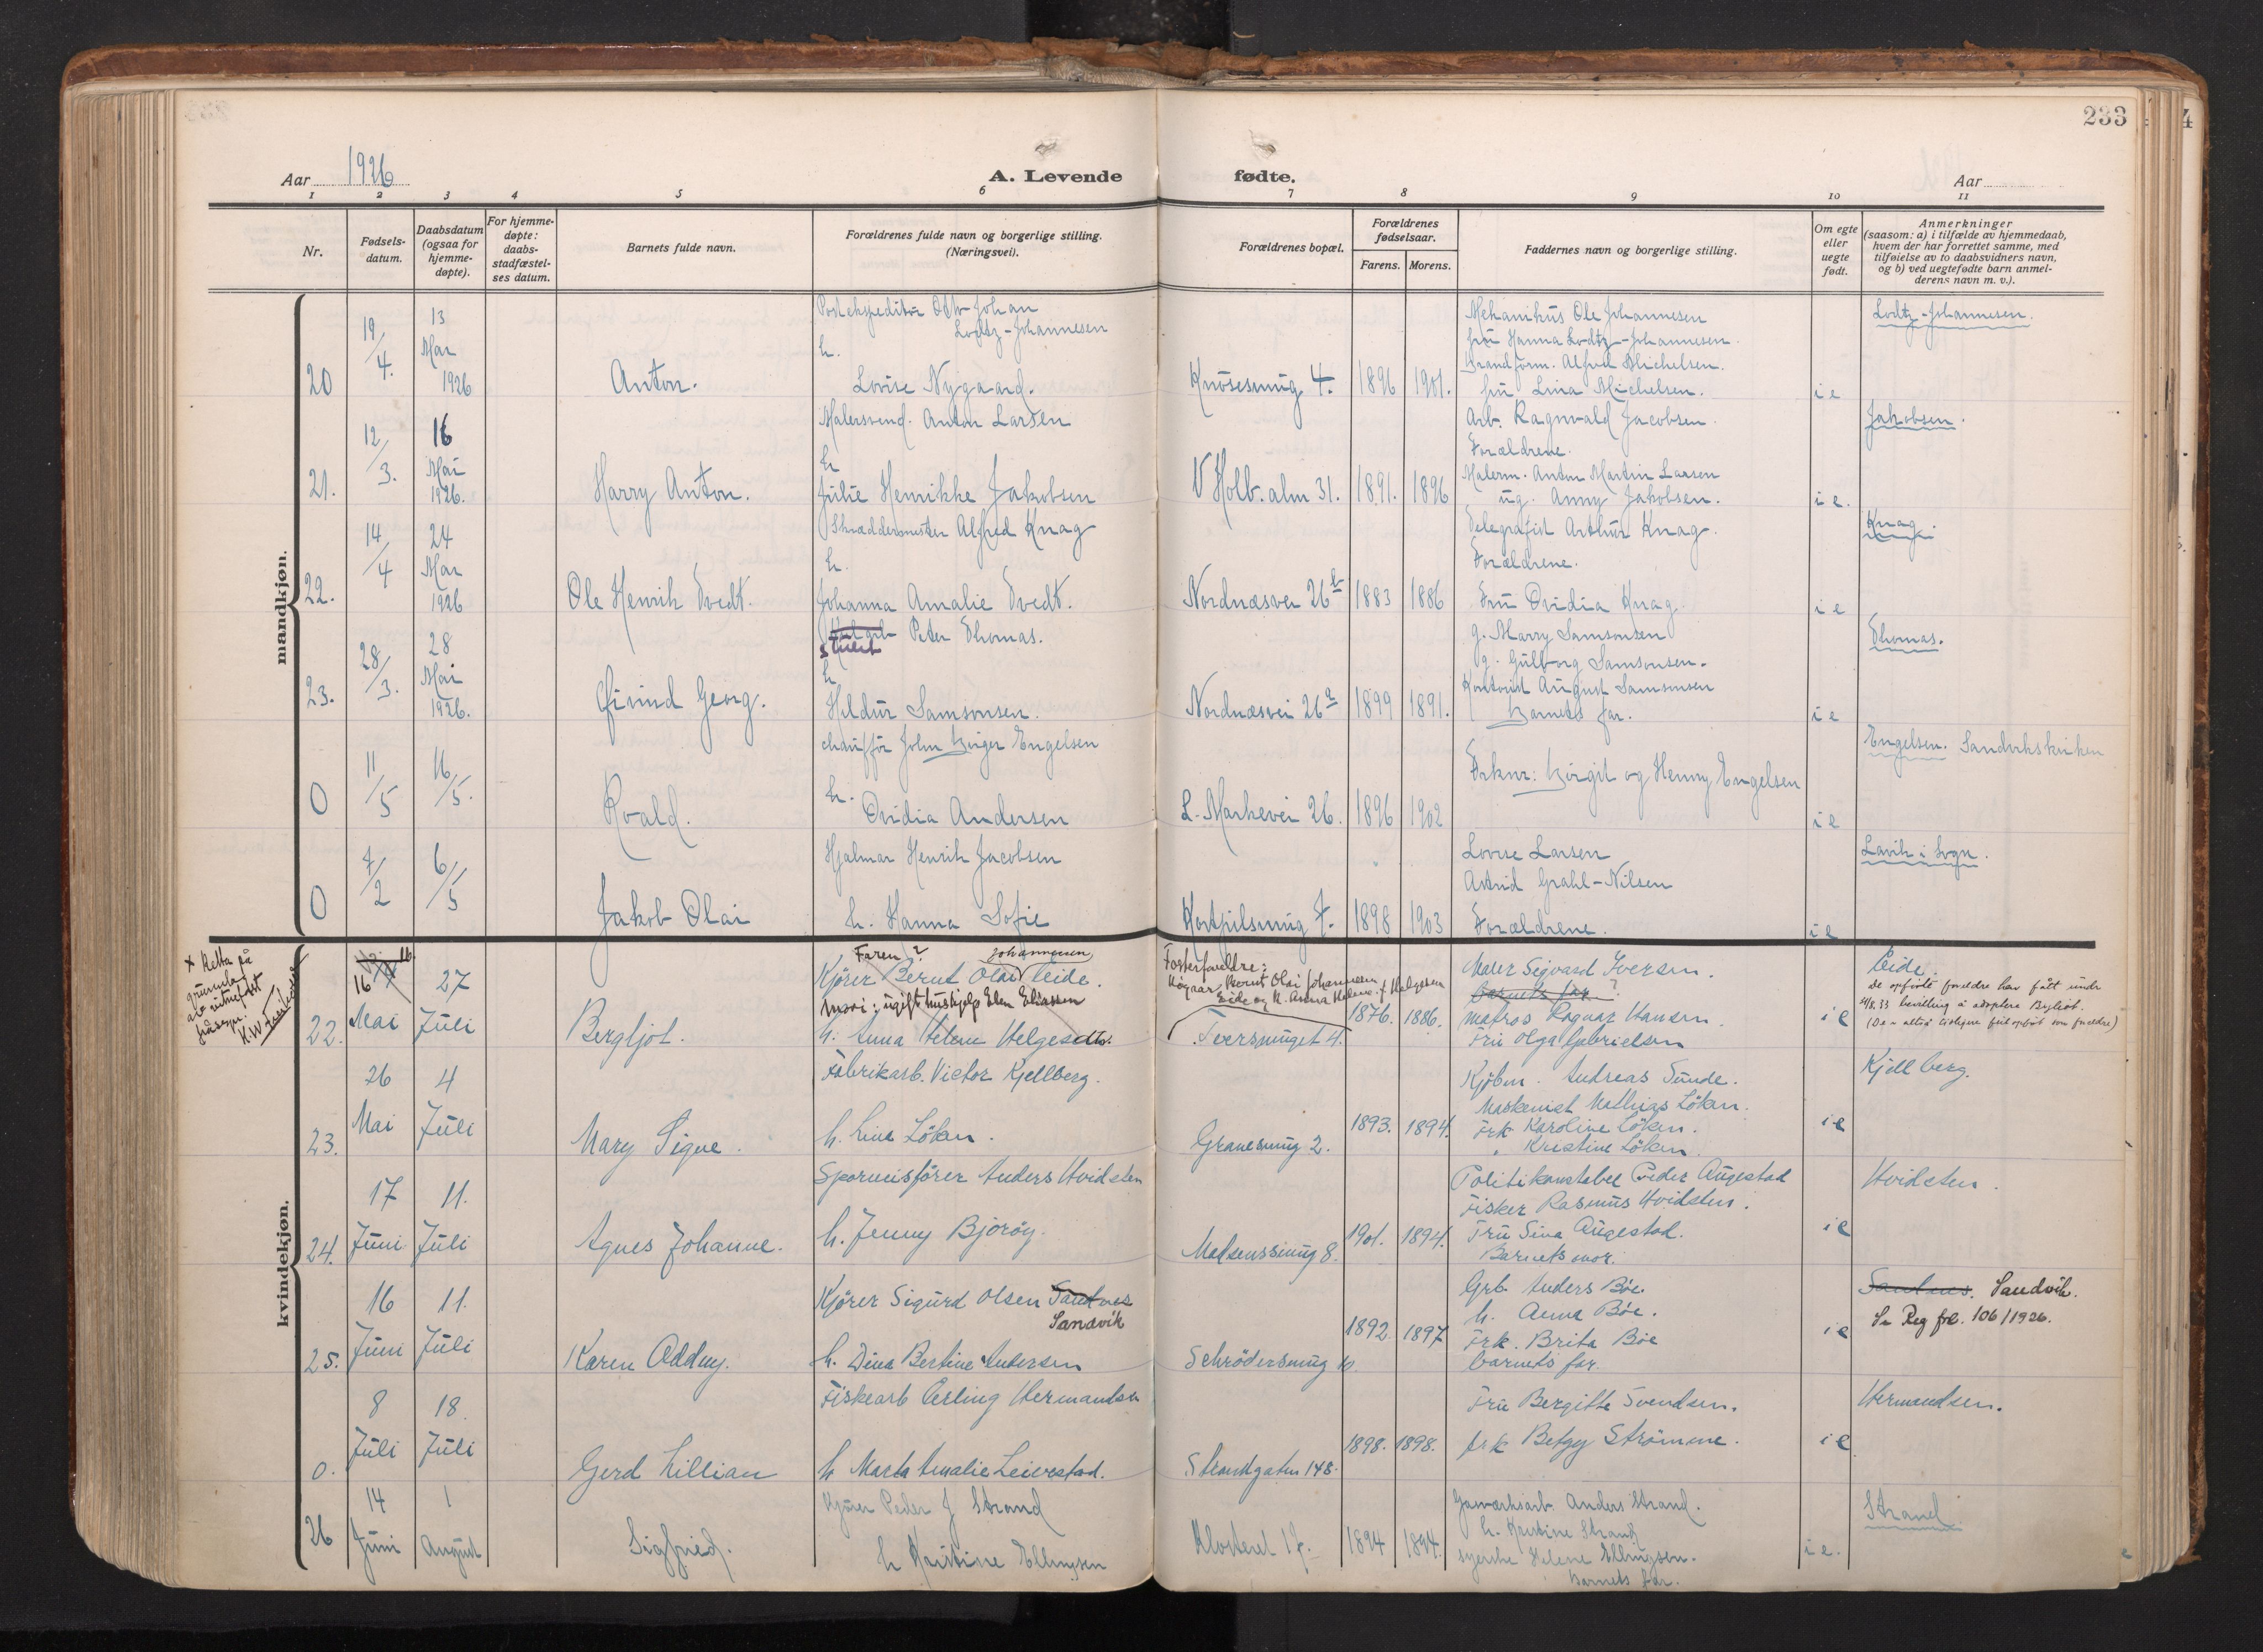 233
Aar 1926
A. Levende fødte.
Aar
1 2 3 4 5 6 7 8 9 10 11
Nr.
Fødselsdatum.
Daabsdatum (ogsaa for hjemmedøpte).
For hjemmedøpte: daabsstadfæstelses datum.
Barnets fulde navn.
Forældrenes fulde navn og borgerlige stilling. (Næringsvei).
Forældrenes bopæl.
Forældrenes fødselsaar.
Farens. Morens.
Faddernes navn og borgerlige stilling.
Om egte eller uegte født.
Anmerkninger (saasom: a) i tilfælde av hjemmedaab, hvem der har forrettet samme, med tilføielse av to daabsvidners navn, og b) ved uegtefødte barn anmelderens navn m. v.).
mandkjøn.
20
19/4.
13 Mai 1926
Anton.
Postekspeditør Otto Johan
Lodtz-Johannesen
h.
Lovise Nygaard.
Knøsesmug 4.
1896 1901.
Mekanikus Ole Johannesen
fru Hanna Lodtz-Johannesen.
Brandform. Alfred Michelsen.
fru Lina Michelsen.
i e
Lodtz-Johannesen.
21.
12/3.
16 Mai 1926.
Harry Anton.
Malersvend. Anton Larsen
h
Julie Henrikke Jakobsen
V Holb. alm 31.
1891. 1896
Arb. Ragnvald Jacobsen.
Forældrene.
Malerm. Anton Martin Larsen
ug. Anny Jakobsen.
i e.
Jakobsen.
22.
14/4
24 Mai 1926
Ole Henrik Tvedt.
Skræddermester Alfred Knag
h.
Johanna Amalie Tvedt.
Nordnæsvei 26b
1883 1886
Telegrafist Arthur Knag.
Forældrene.
Fru Ovidia Knag
i e
Knag.
23.
28/3.
28 Mai 1926.
Øivind Georg.
Peter Thomas.
h
Hildur Samsonsen.
Nordnæsvei 26a
1899 1891.
g. Marry Samsonsen
g. Gulborg Samsonsen.
Kontorist August Samsonsen
Barnets far.
i e
Thomas.
0
11/5
16/5.
Roald.
chauffør John Birger Engelsen
h.
Ovidia Andersen
L. Markevei 26.
1896 1902
Frknr: Birgit og Henny Engelsen
i e
Engelsen. Sandvikskirken
0
7/2
6/5
Jakob Olai
Hjalmar Henrik Jacobsen
h. Hanna Sofie
Kortpilsmug 7.
1898 1903
Lovise Larsen
Astrid Grahl-Nilsen
Forældrene.
i e
Lavik i Sogn.
kvindekjøn.
x Retta på
grunnlag
av
22.
16 Mai
27 Juli
Bergljot.
Faren? Johannessen
Kjører Bernt Olai Eide.
Mori: ugift hushjelp Elen Eliassen
h. Anna Helene Helgesdtr.
Fosterforeldre:
Bernt Olai Johannessen
Eide og h. Anna Helene f Helgesen
Tversmuget 4.
1876. 1886.
Maler Sigvard Iversen.
barnets far ?
matros Ragnar Hansen.
Fru Olga Gabrielsen
i e
Eide.
De opførte foreldre har fått under
bevilling å adoptere Bergljot.
23.
26 Mai
4 Juli
Mary Signe.
Fabrikarb. Victor Kjellberg.
h. Lina Löken.
Gravesmug 2.
1893. 1894.
Kjöbm. Andreas Sunde.
Maskenist Mathias Löken.
Frk Karoline Löken.
" Kristine Löken.
i e
Kjellberg.
24.
17 Juni
11. Juli
Agnes Johanne.
Sporveisfører Anders Hvidsten
h. Jenny Bjorøy.
Madsenssmug 8.
1901. 1894.
Politikonstabel Peder Augestad
Fisker Rasmus Hvidsten.
Fru Sina Augestad.
Barnets mor.
i e
Hvidsten.
25.
16 Juni
11. Juli
Karen Oddny.
Kjører Sigurd Olsen Sandnes
Sandvik
h. Dina Bertine Andersen
Schrödersmug 10.
1892 1897
Grb. Anders Böe.
h. Anna Böe.
Frk. Brita Böe
barnets far.
i e
Sandnes. Sandvik.
Se Reg frl. 106/1926.
0.
8 Juli
18 Juli
Gerd Lillian
Fiskearb Erling Hermandsen
h Marta Amalie Leirestad.
Strandgaten 148.
1898. 1898.
Fru Bergitte Svendsen.
frk Betzy Strömme.
i e
Hermandsen.
26
14 Juni
1 August
Sigfried.
Kjører Peder J Strand
h Kristine Ellingsen
Klosteret 17.
1894 1894.
Gasværksarb. Anders Strand.
h. Kristine Strand
syerske Helene Ellingsen.
Barnets far.
i e.
Strand.